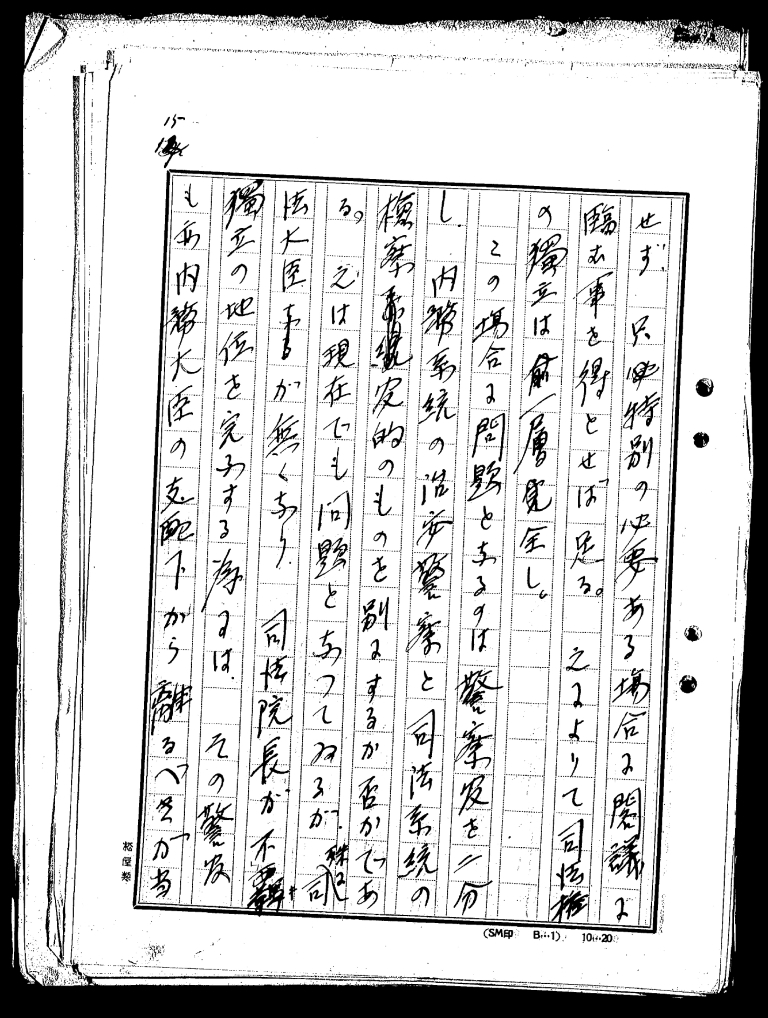 15
せず、只必特別の必要ある場合に閣議に
臨む事を得とせば足る。之によりて司法権
の獨立は尚一層完全し。
この場合に問題となるのは警察官を二分
し、内務系統の治安警察と司法系統の
検察系統官的のものを別にするか否かであ
る。之は現在でも問題となつてゐるが、殊に司
法大臣なるが無くなり、司法院長が不羈
獨立の地位を完うする為には、その警官
も亦内務大臣の支配下から離るべきが当
(SM印 B…1) 10…20